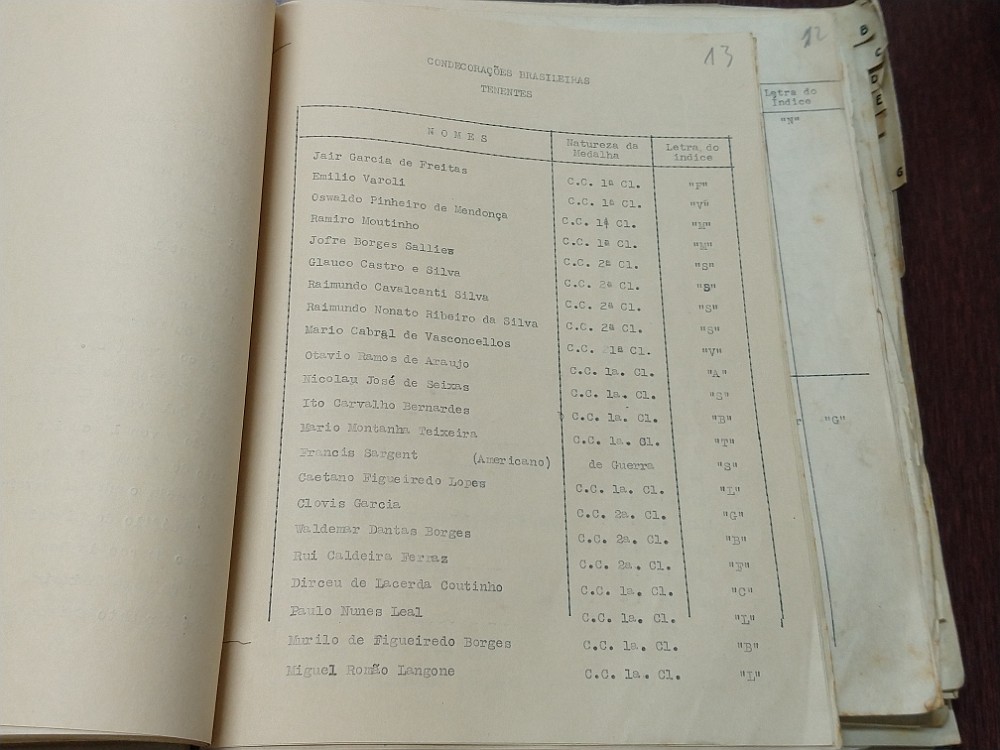 13
CONDECORAÇÕES BRASILEIRAS
TENENTES
N O M E S Natureza da Medalha Letra do índice
Jair Garcia de Freitas C.C. 1ª Cl. "F"
Emilio Varoli C.C. 1ª Cl. "V"
Oswaldo Pinheiro de Mendonça C.C. 1ª Cl. "M"
Ramiro Moutinho C.C. 1ª Cl. "M"
Jofre Borges Sallies C.C. 2ª Cl. "S"
Glauco Castro e Silva C.C. 2ª Cl. "S"
Raimundo Cavalcanti Silva C.C. 2ª Cl. "S"
Raimundo Nonato Ribeiro da Silva C.C. 2ª Cl. "S"
Mario Cabral de Vasconcellos C.C. 1ª Cl. "V"
Otavio Ramos de Araujo C.C. 1a. Cl. "A"
Nicolau José de Seixas C.C. 1a. Cl. "S"
Ito Carvalho Bernardes C.C. 1a. Cl. "B"
Mario Montanha Teixeira C.C. 1a. Cl. "T"
Francis Sargent (Americano) de Guerra "S"
Caetano Figueiredo Lopes C.C. 1a. Cl. "L"
Clovis Garcia C.C. 2a. Cl. "G"
Waldemar Dantas Borges C.C. 2a. Cl. "B"
Rui Caldeira Ferraz C.C. 2a. Cl. "F"
Dirceu de Lacerda Coutinho C.C. 1a. Cl. "C"
Paulo Nunes Leal C.C. 1a. Cl. "L"
Murilo de Figueiredo Borges C.C. 1a. Cl. "B"
Miguel Romão Langone C.C. 1a. Cl. "L"
12
Letra do
Índice
"G"
B
C
D
E
G